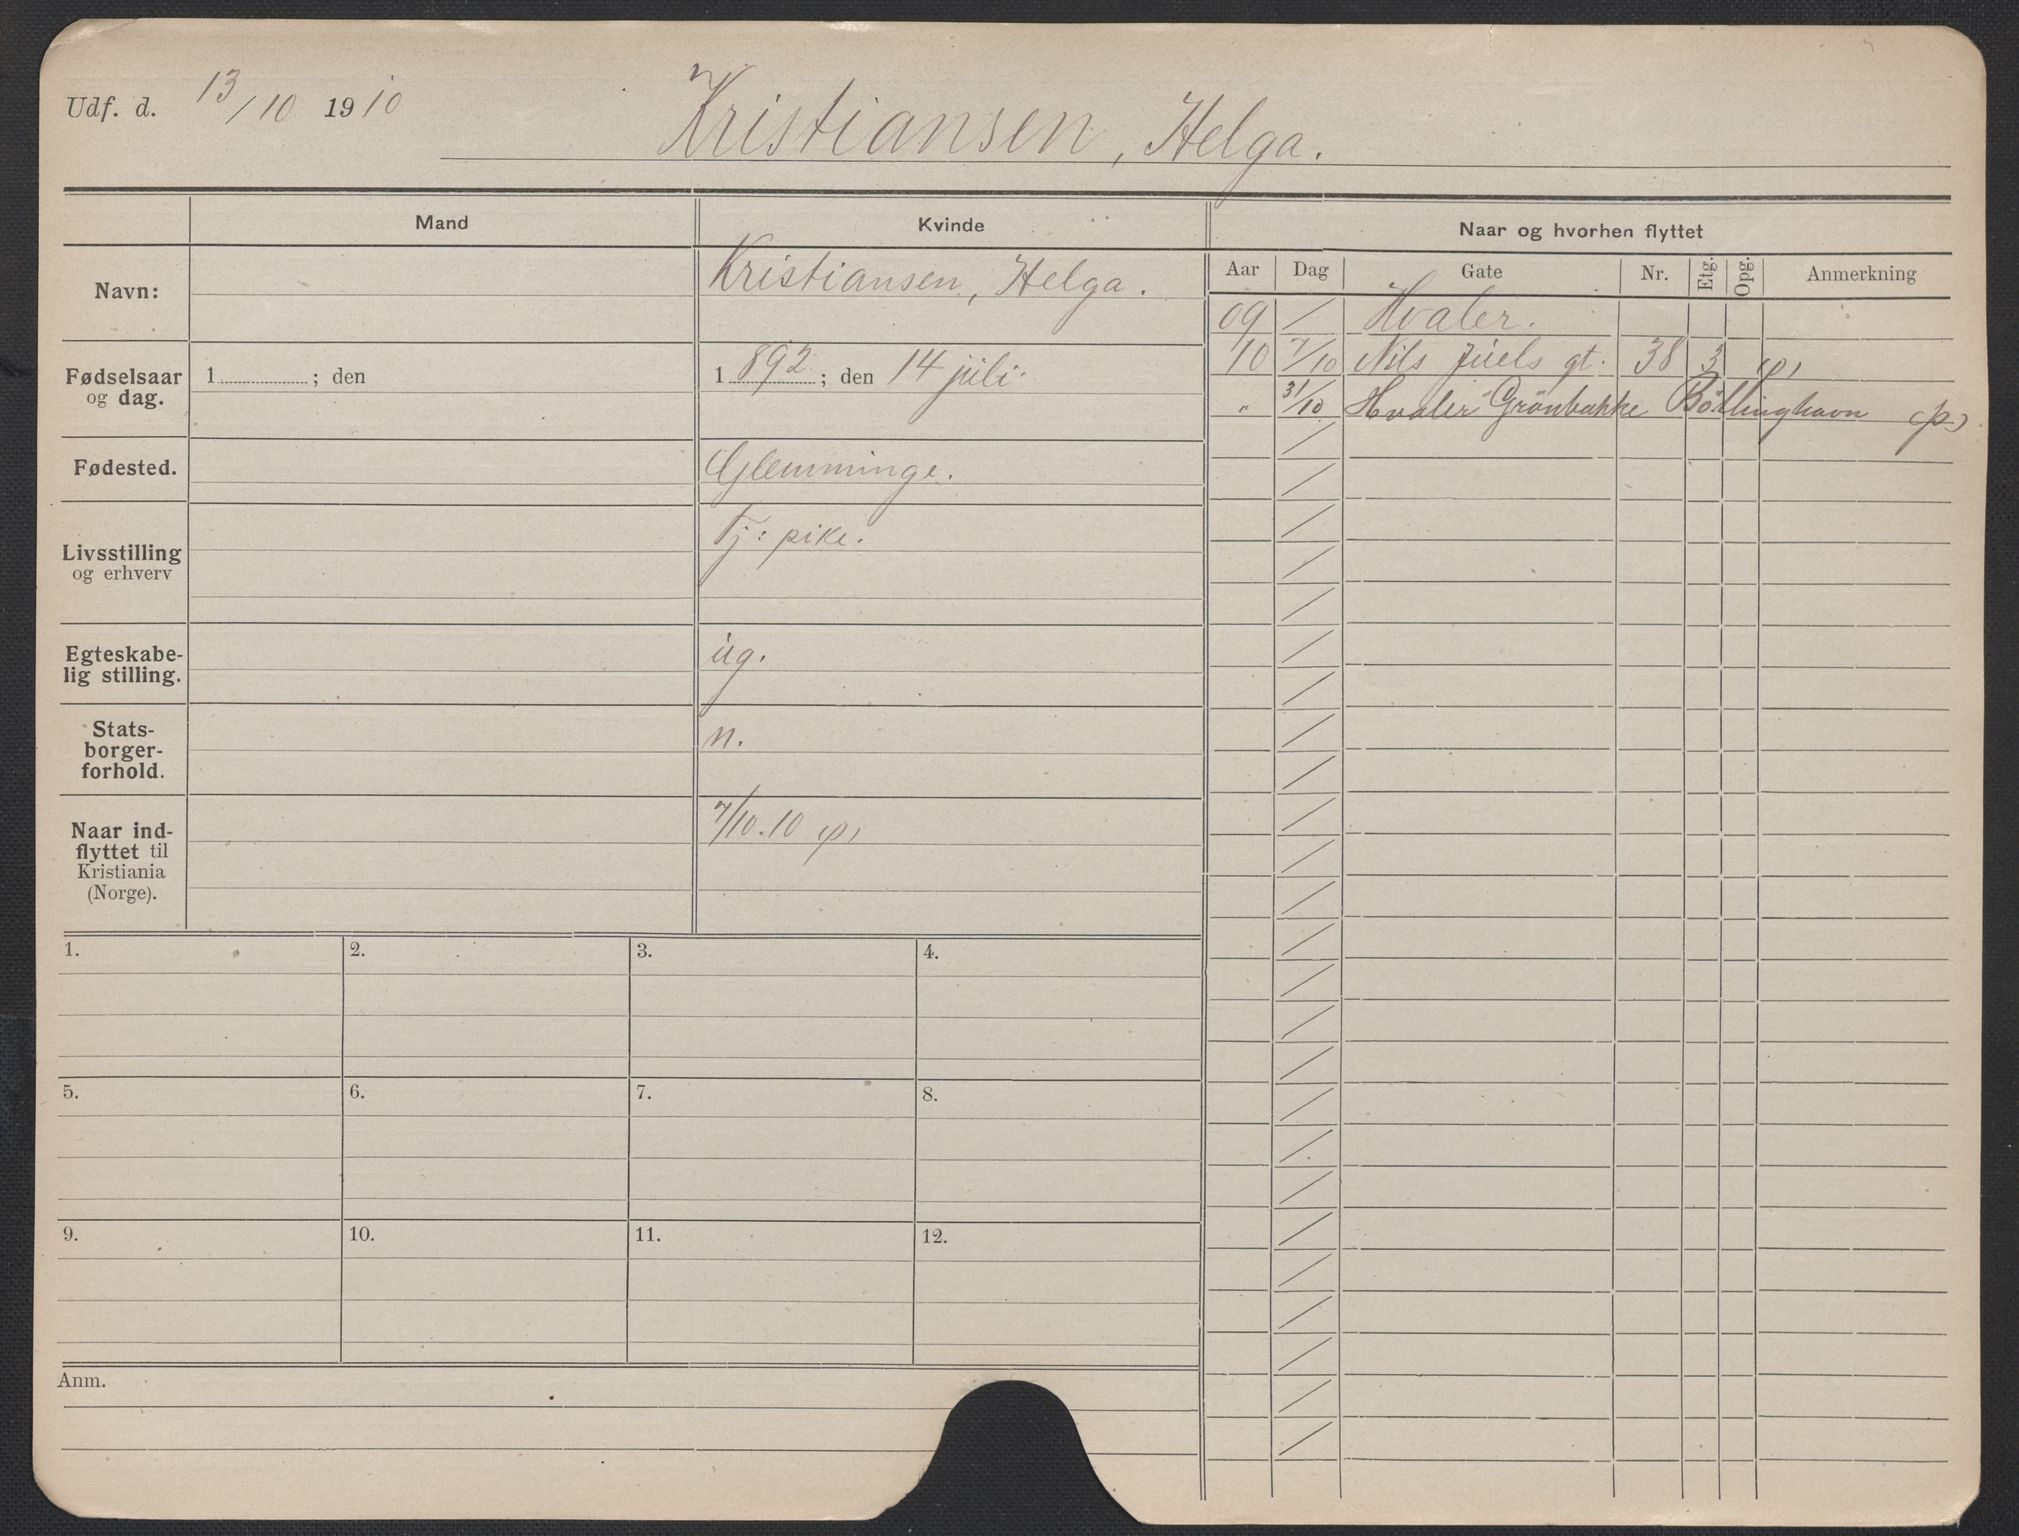 Udf. d. 13/10 1910 Kristiansen, Helga.
Mand Kvinde Naar og hvorhen flyttet
Navn: Kristiansen, Helga.
Fødselsaar og dag. 1 ; den 1 892 ; den 14 juli.
Fødested. Glemminge.
Livsstilling og erhverv Tj: pike.
Egteskabe-
lig stilling. ug.
Stats-
borger-
forhold. n.
Naar ind-
flyttet til
Kristiania
(Norge). 7/10.10 (p)
Aar Dag Gate Nr. Etg. Opg. Anmerkning
09 / Hvaler.
10 7/10 Nils Juels gt. 38 3 (p)
" 31/10 Hvaler Grönbakke (p)
1. 2. 3. 4.
5. 6. 7. 8.
9. 10. 11. 12.
Anm.